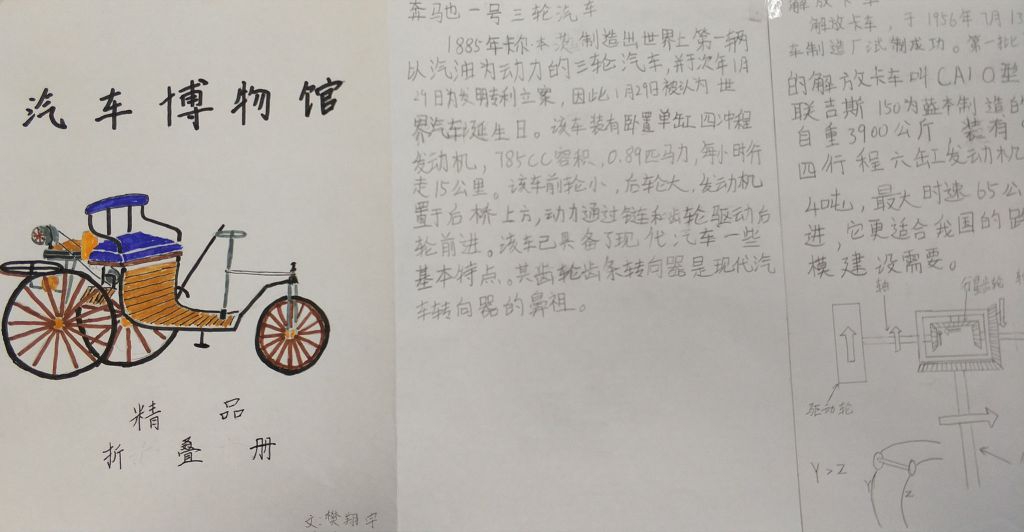 汽车博物馆
精 品
折 叠 册
文:樊翔宇
奔驰一号三轮汽车
1885年卡尔本茨制造出世界上第一辆
以汽油为动力的三轮汽车,并于次年1月
29日为发明专利立案,因此1月29日被认为世
界汽车诞生日。该车装有卧置单缸四冲程
发动机,785CC容积,0.89匹马力,每小时行
走15公里。该车前轮小,后轮大,发动机
置于后桥上方,动力通过链和齿轮驱动后
轮前进。该车已具备了现代汽车一些
基本特点。其齿轮齿条转向器是现代汽
车转向器的鼻祖。
解放卡车
解放卡车,于1956年7月13
车制造厂试制成功。第一批
的解放卡车叫CA10型
联吉斯150为蓝本制造的
自重3900公斤,装有
四行程六缸发动机
4吨,最大时速65公
进,它更适合我国的路
模建设需要。
轴
行星齿轮
驱动轮
Y>Z
Y
Z